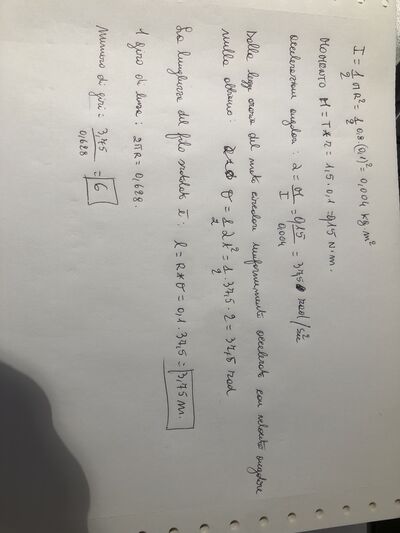 I = 1/2 MR² = 1/2 0,8·(0,1)² = 0,004 kg·m²
MOMENTO M = T*r = 1,5·0,1 = 0,15 N·m.
accelerazione angolare: α = M/I = 0,15/0,004 = 37,5 rad/sec²
Dalla legge oraria del moto circolare uniformemente accelerato con velocità angolare
nulla abbiamo: θ = 1/2 αt² = 1/2·37,5·2 = 37,5 rad
La lunghezza del filo srotolato è: l = R*θ = 0,1·37,5 = 3,75 m.
1 giro di 2πR = 0,628.
Numero di giri = 3,75/0,628 = 6